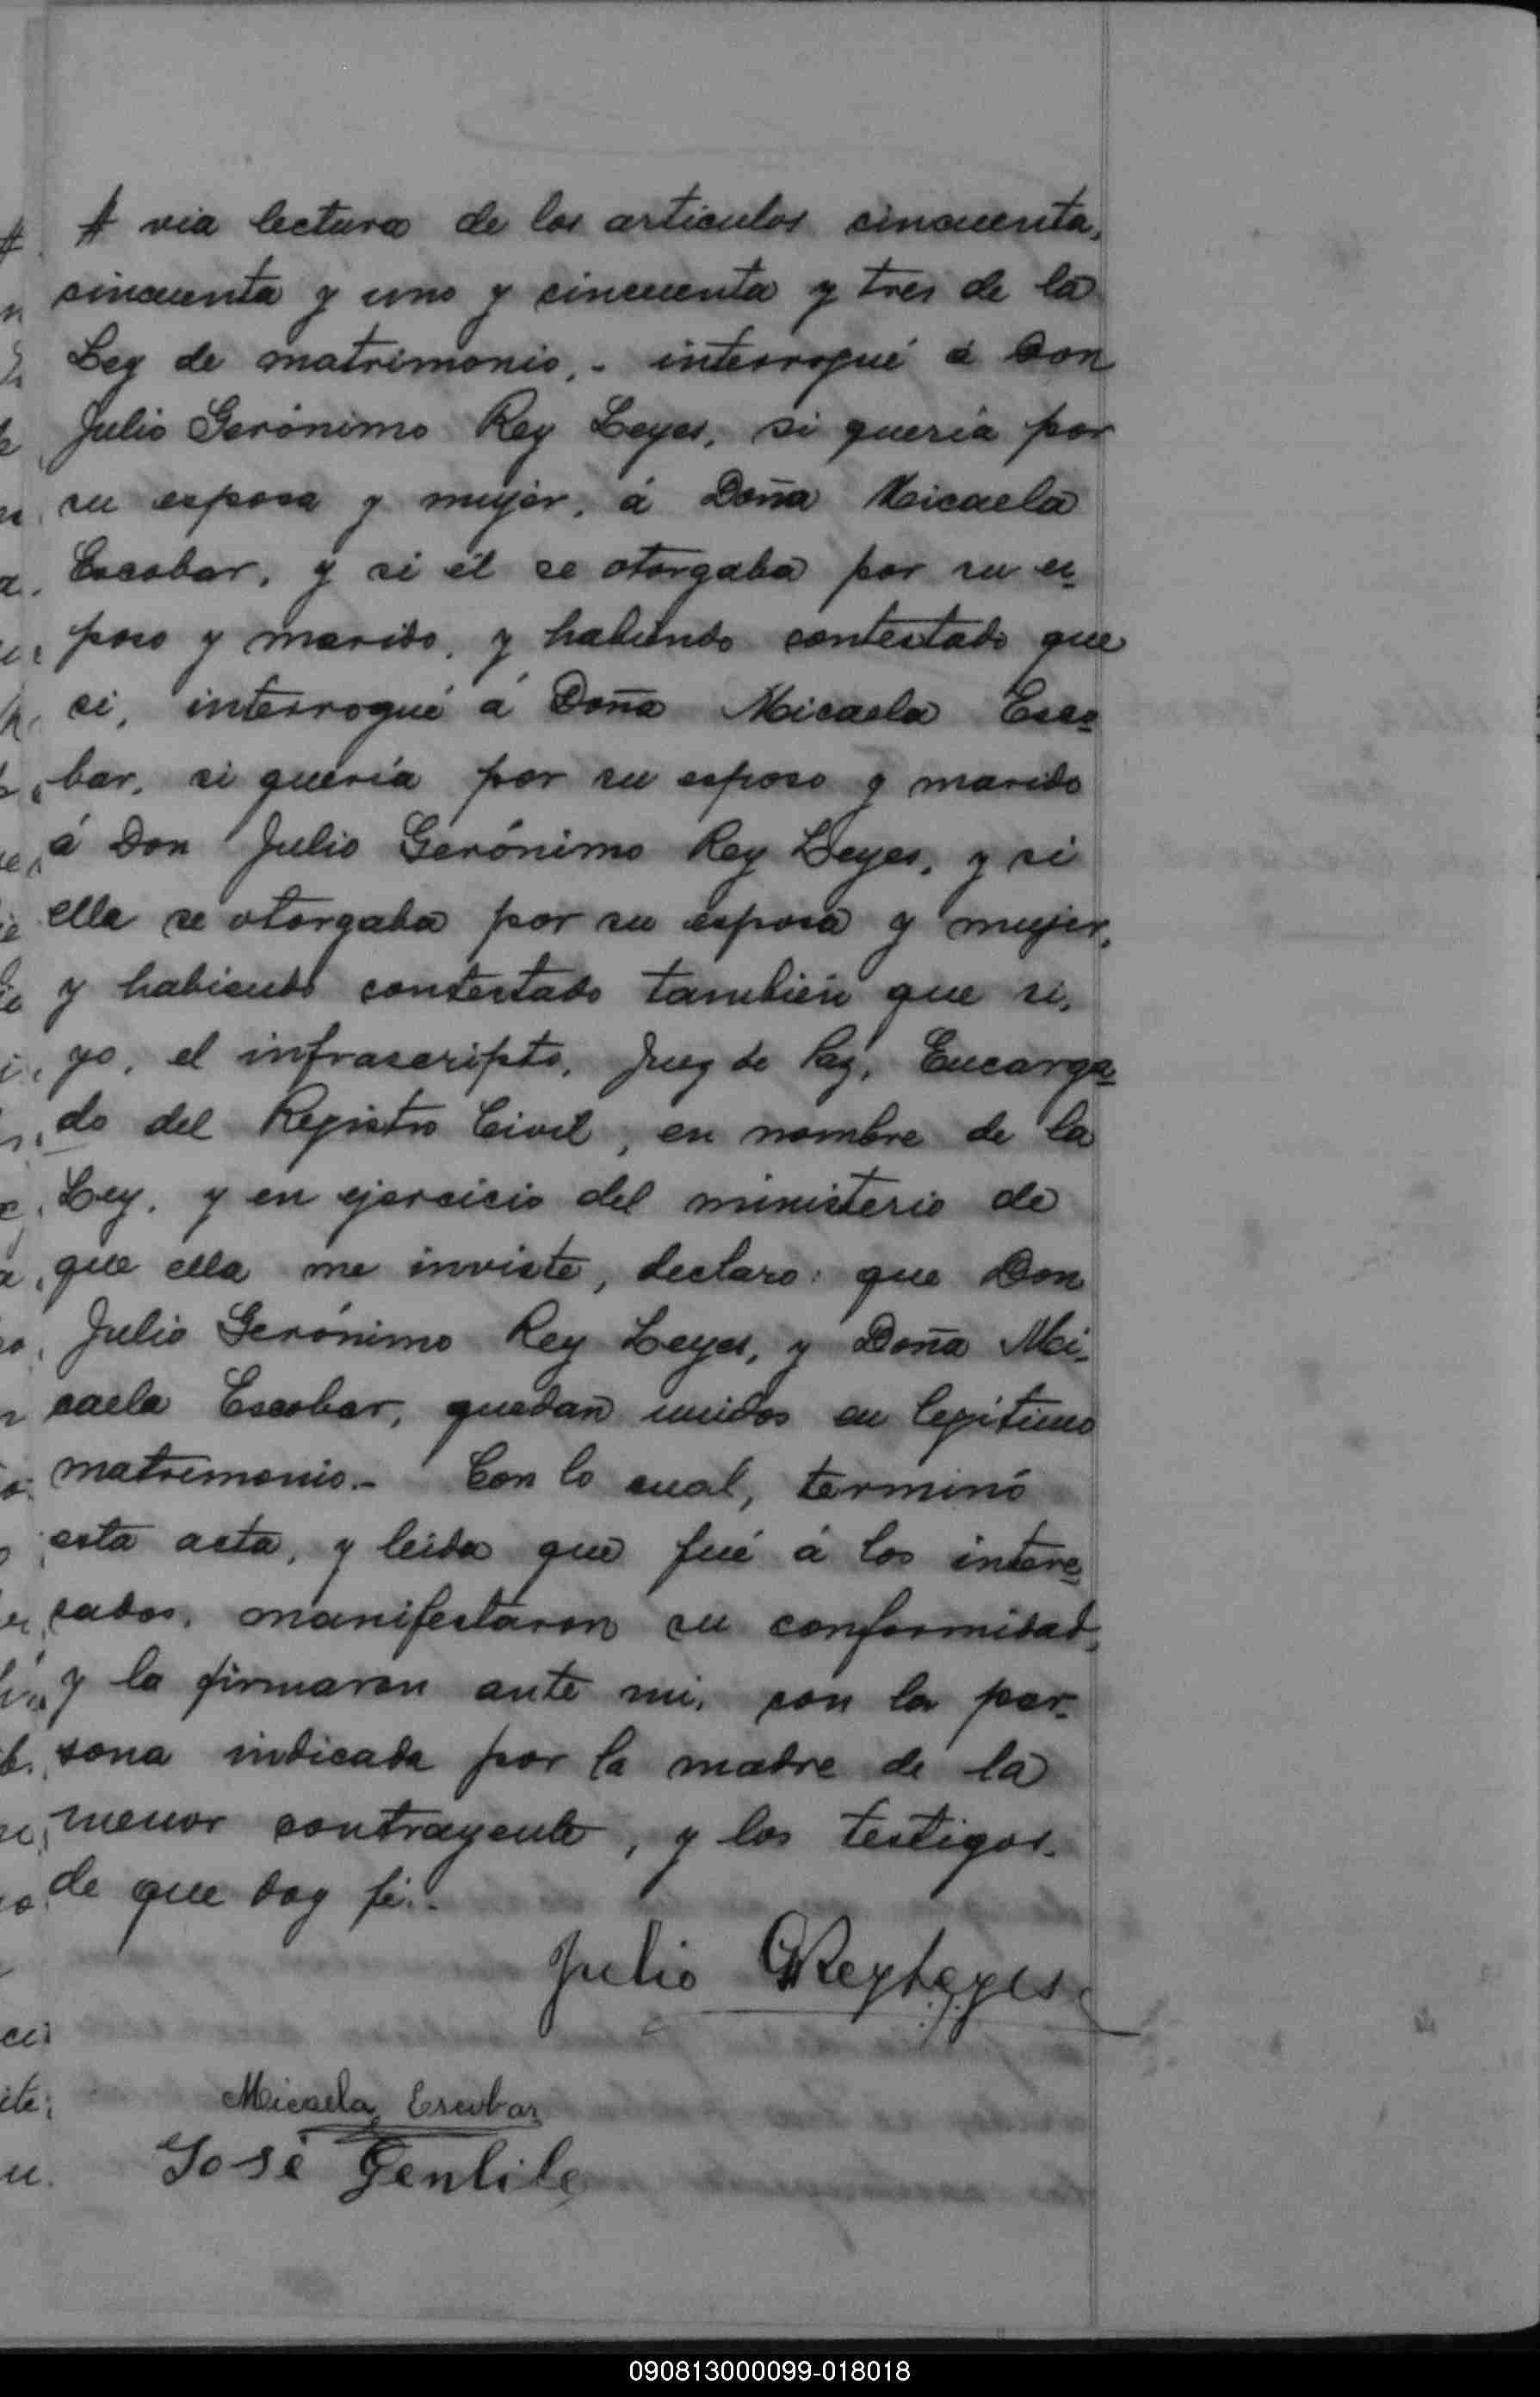 # via lectura de los articulos cincuenta,
cincuenta y uno y cincuenta y tres de la
Ley de matrimonio,- interrogué á Don
Julio Gerónimo Rey Leyes, si quería por
su esposa y mujer, á Doña Micaela
Escobar, y si él se otorgaba por su es-
poso y marido, y habiendo contestado que
si, interrogué á Doña Micaela Esco-
bar, si quería por su esposo y marido
á Don Julio Gerónimo Rey Leyes, y si
ella se otorgaba por su esposa y mujer,
y habiendo contestado también que si,
yo, el infrascripto, Juez de Paz, Encarga-
do del Registro Civil, en nombre de la
Ley, y en ejercicio del ministerio de
que ella me inviste, declaro: que Don
Julio Gerónimo Rey Leyes, y Doña Mi-
caela Escobar, quedan unidos en legitimo
matrimonio.- Con lo cual, terminó
esta acta, y leida que fué á los intere-
sados, manifestaron su conformidad,
y la firmaron ante mi, con la per-
sona indicada por la madre de la
menor contrayente, y los testigos.
de que doy fé.-
Julio G Rey Leyes
Micaela Escobar
José Gentile
090813000099-018018